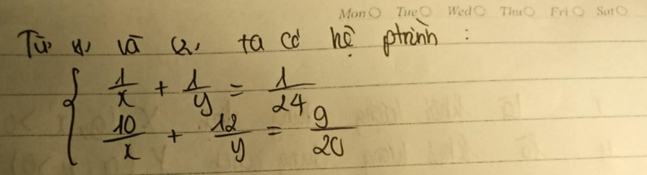 Mon Tue Wed Thu Fri Sat
Từ (1) và (2) ta có hệ ptrình :
1/x + 1/y = 1/24
10/x + 12/y = 9/20